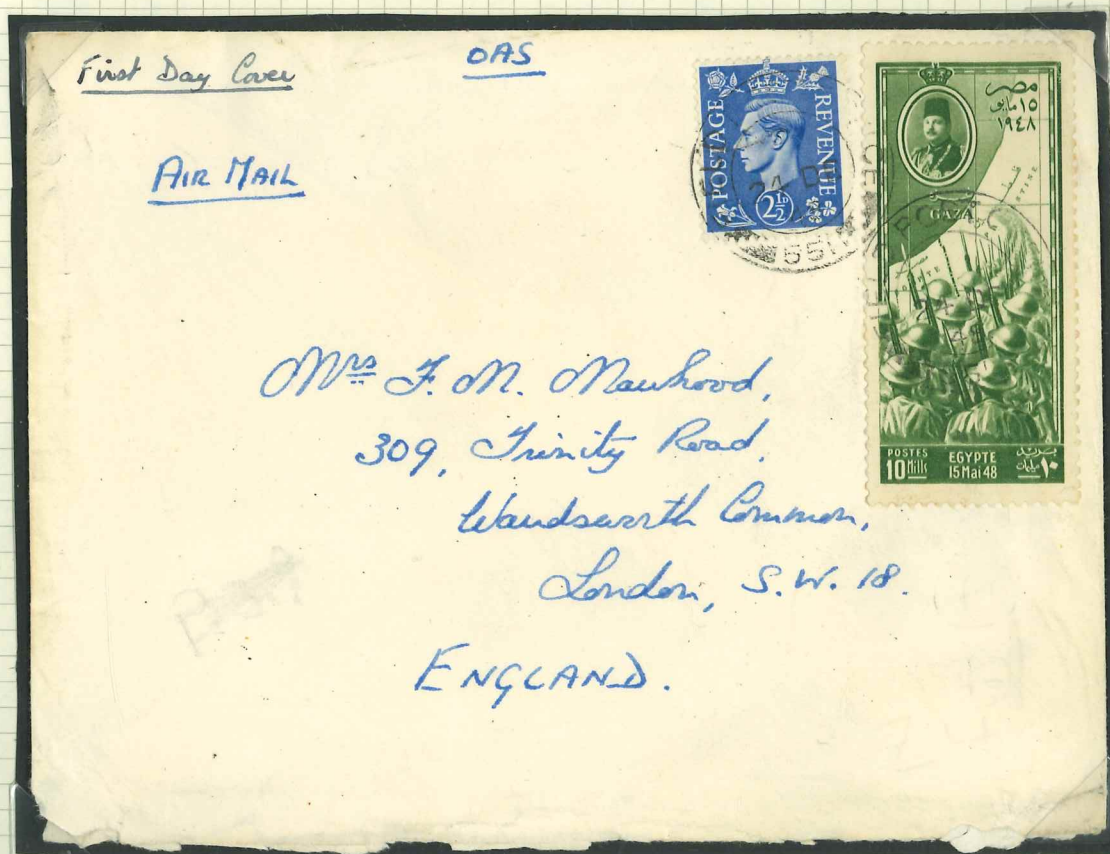 First Day Cover
OAS
AIR MAIL
POSTAGE
REVENUE
2½D
مصر
١٥ مايو
١٩٤٨
GAZA
POSTES
10 Mills
EGYPTE
15 Mai 48
١٠
Mrs F. M. Mawhood,
309, Trinity Road,
Wandsworth Common,
London, S.W. 18.
ENGLAND.